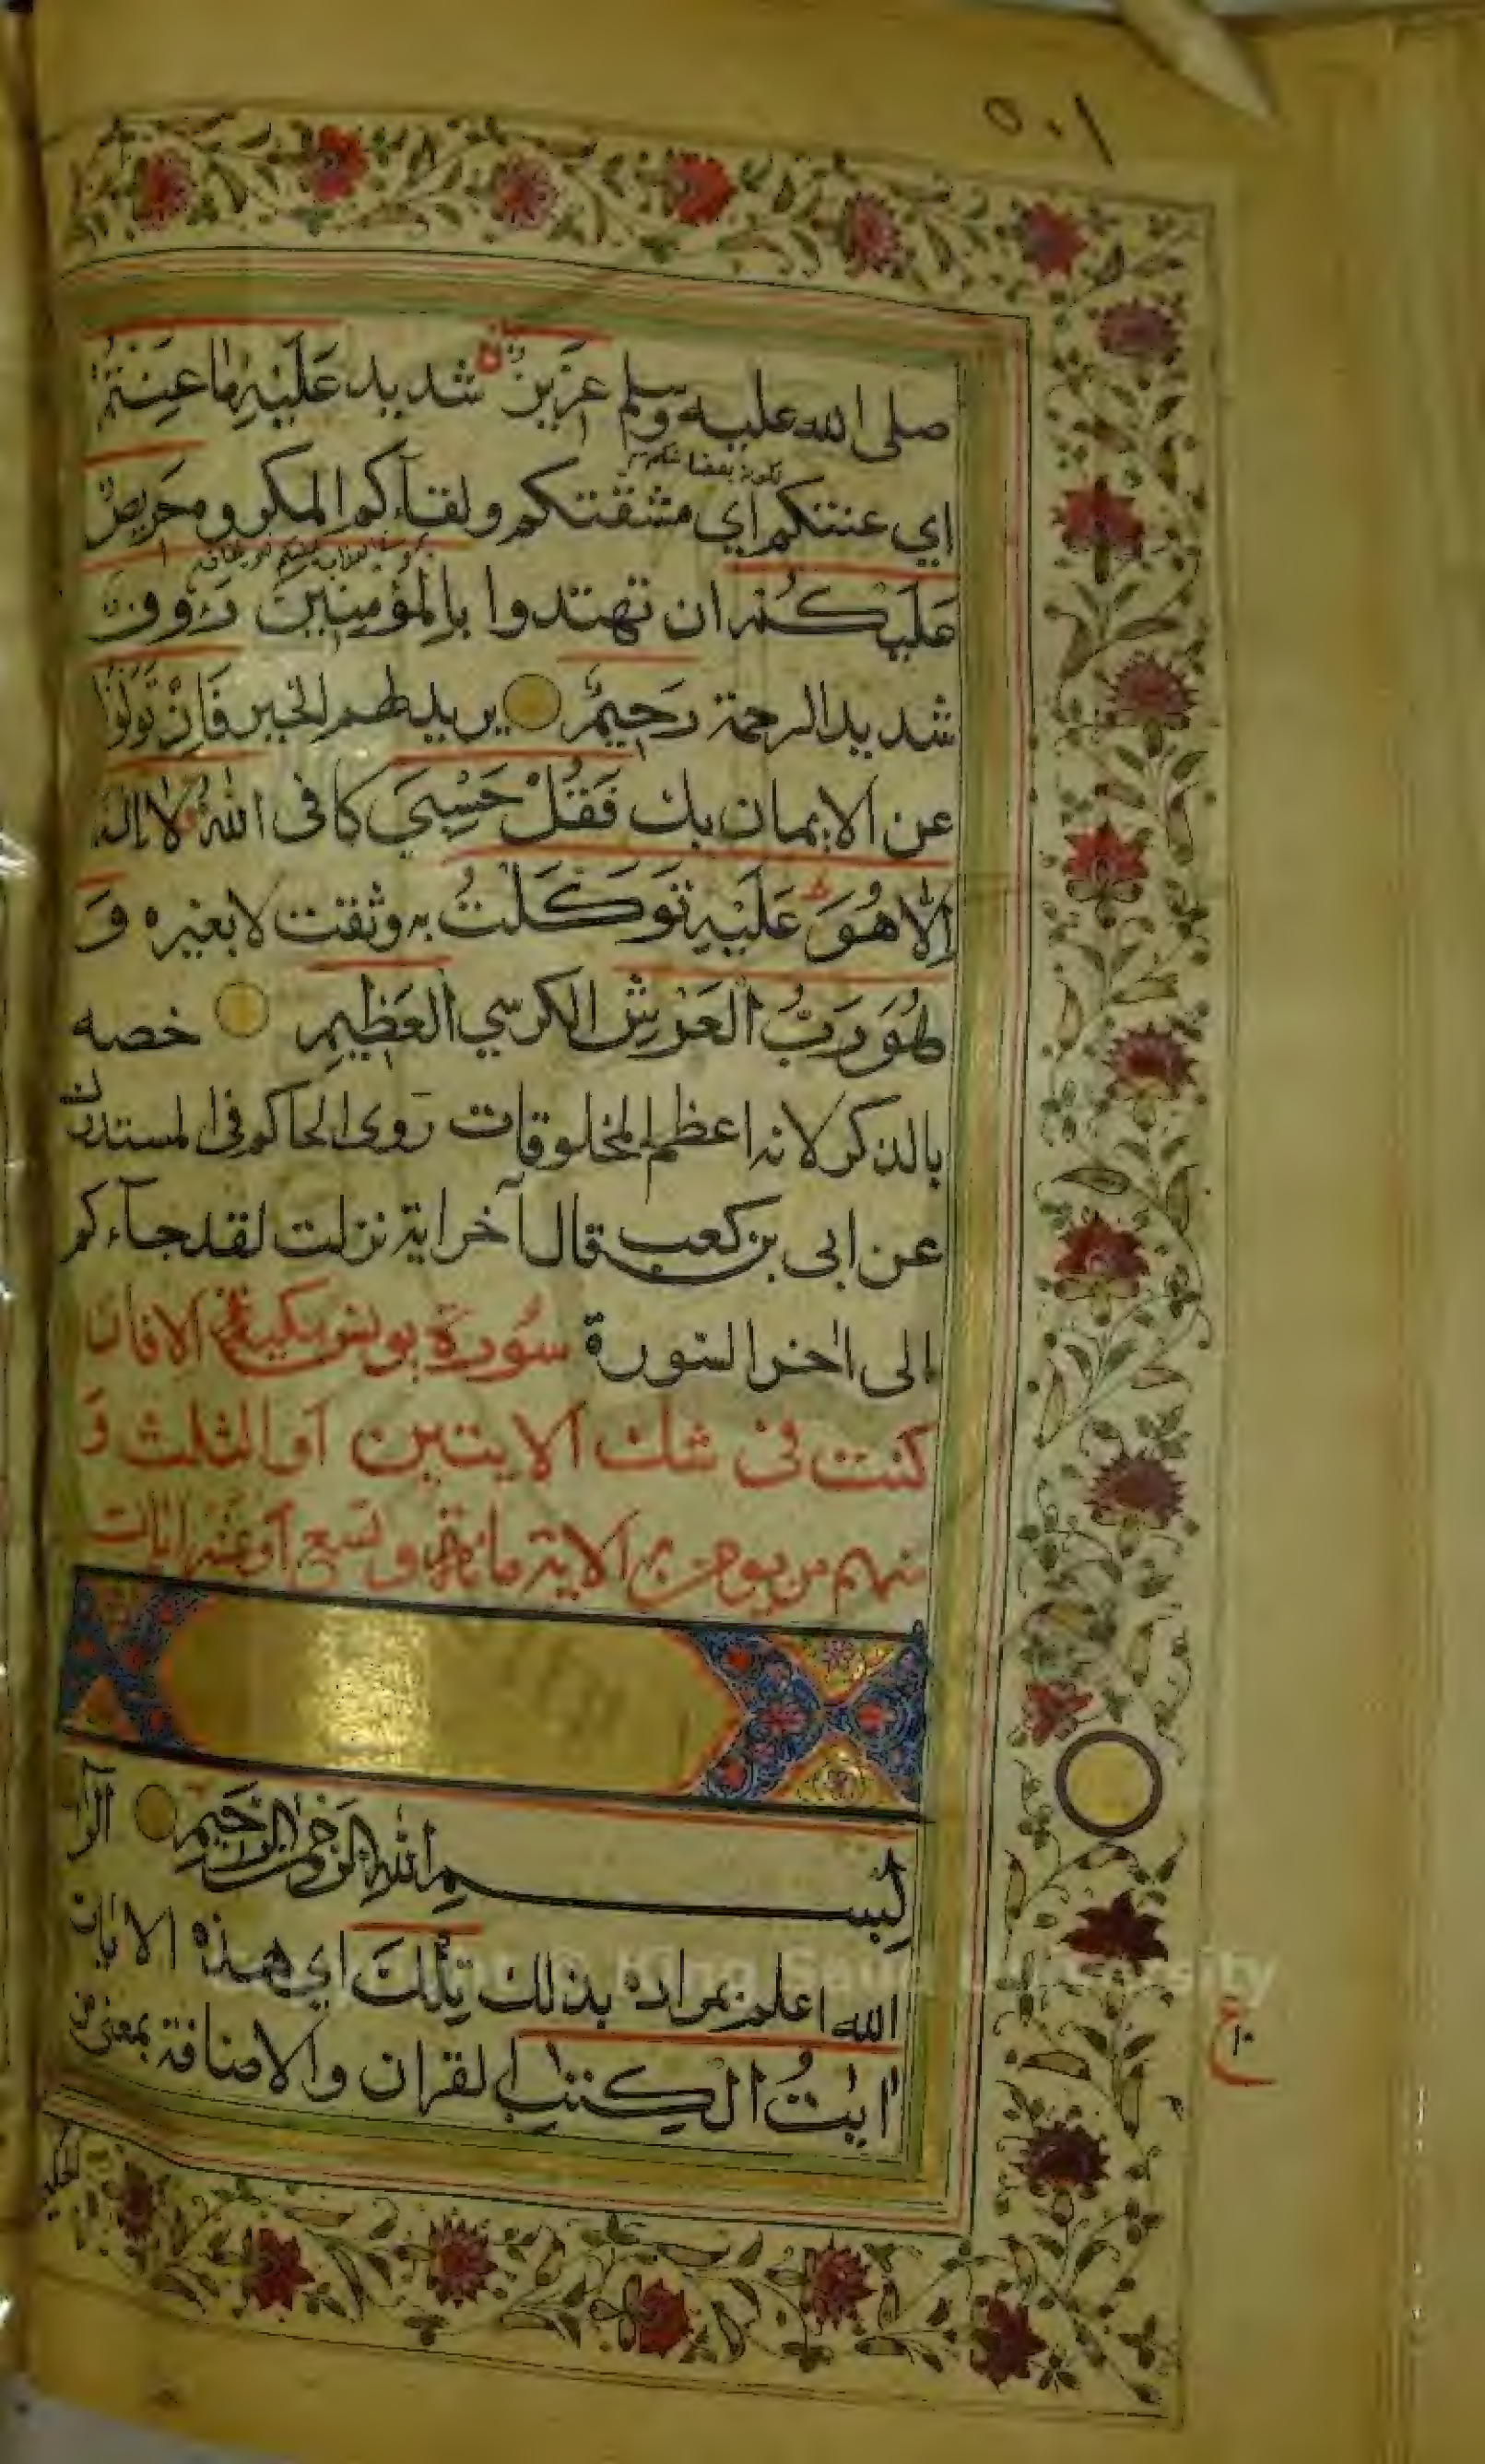 ٥٠١
صلى الله عليه وسلم عزيز شديد عَلَيْهِ مَا عَنِتُّمْ
اي عنتكم اي مشقتكم ولقاءكم المكروه حَرِيصٌ
عَلَيْكُمْ ان تهتدوا بِالْمُؤْمِنِينَ رَءُوفٌ
شديد الرحمة رَحِيمٌ يريد لهم الخير فَاِنْ تَوَلَّوْا
عن الايمان بك فَقُلْ حَسْبِيَ كافى اللّٰهُ لا اله
اِلَّا هُوَ عَلَيْهِ تَوَكَّلْتُ به وثقت لا بغيره وَ
هُوَ رَبُّ الْعَرْشِ الكرسي الْعَظِيمِ خصه
بالذكر لانه اعظم المخلوقات روى الحاكم فى المستدرك
عن ابى بن كعب قال آخر اية نزلت لقد جآءكم
الى اخر السورة سورة يونس مكية الا فان
كنت فى شك الايتين او الثلث وَ
منهم من يومن به الاية مائة وتسع او عشر ايات
بسم الله الرحمن الرحيم الٓرٰ
الله اعلم بمراده بذلك تِلْكَ اي هذه الايات
اٰيٰتُ الْكِتٰبِ القران والاضافة بمعنى من
الحكيم
Saud University
ع
١٠